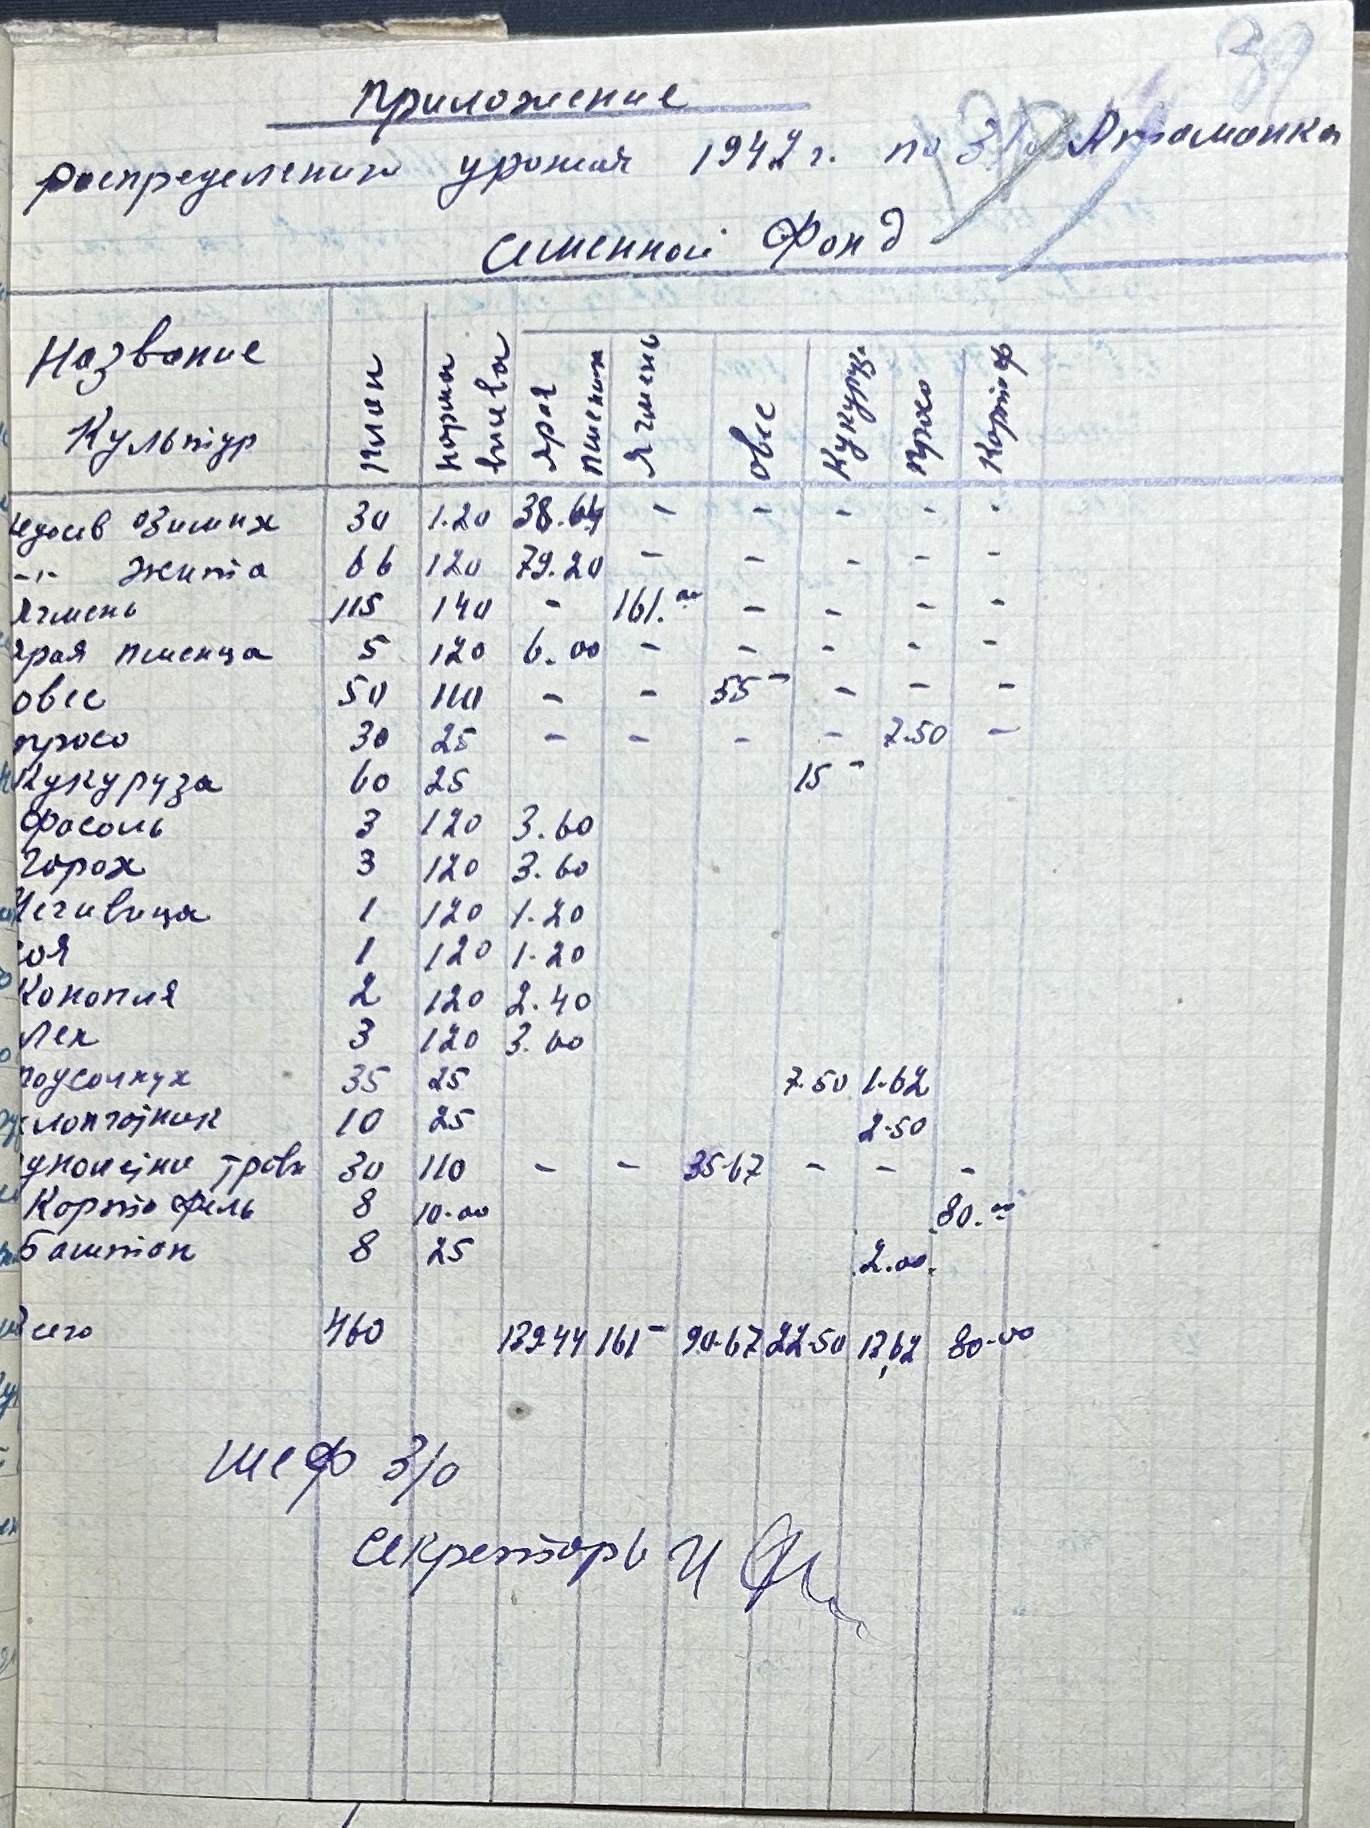 39
Приложение
распределению урожая 1942 г. по З/о Атаманка
Семенной Фонд
Название Культур | план | норма висева | Яроя пшениця | Ячмень | овес | Кукуруз. | просо | Картоф
недосев озимих 30 1.20 38.64 - - - - -
-"- жита 66 120 79.20 - - - - -
Ячмень 115 140 - 161.00 - - - -
Ярая пшенца 5 120 6.00 - - - - -
овес 50 110 - - 55 - - - -
просо 30 25 - - - - 7.50 -
Кукуруза 60 25 15 -
Фасоль 3 120 3.60
Горох 3 120 3.60
Чечивица 1 120 1.20
соя 1 120 1.20
Конопля 2 120 2.40
Лен 3 120 3.60
подсолнух 35 25 7.50 1.62
хлопчатник 10 25 2.50
травы 30 110 - - 35-67 - - -
Картофель 8 10.00 80.00
Баштан 8 25 2.00
Всего 460 139.44 161 - 90-67 22-50 13,62 80-00
шеф З/о
секретарь